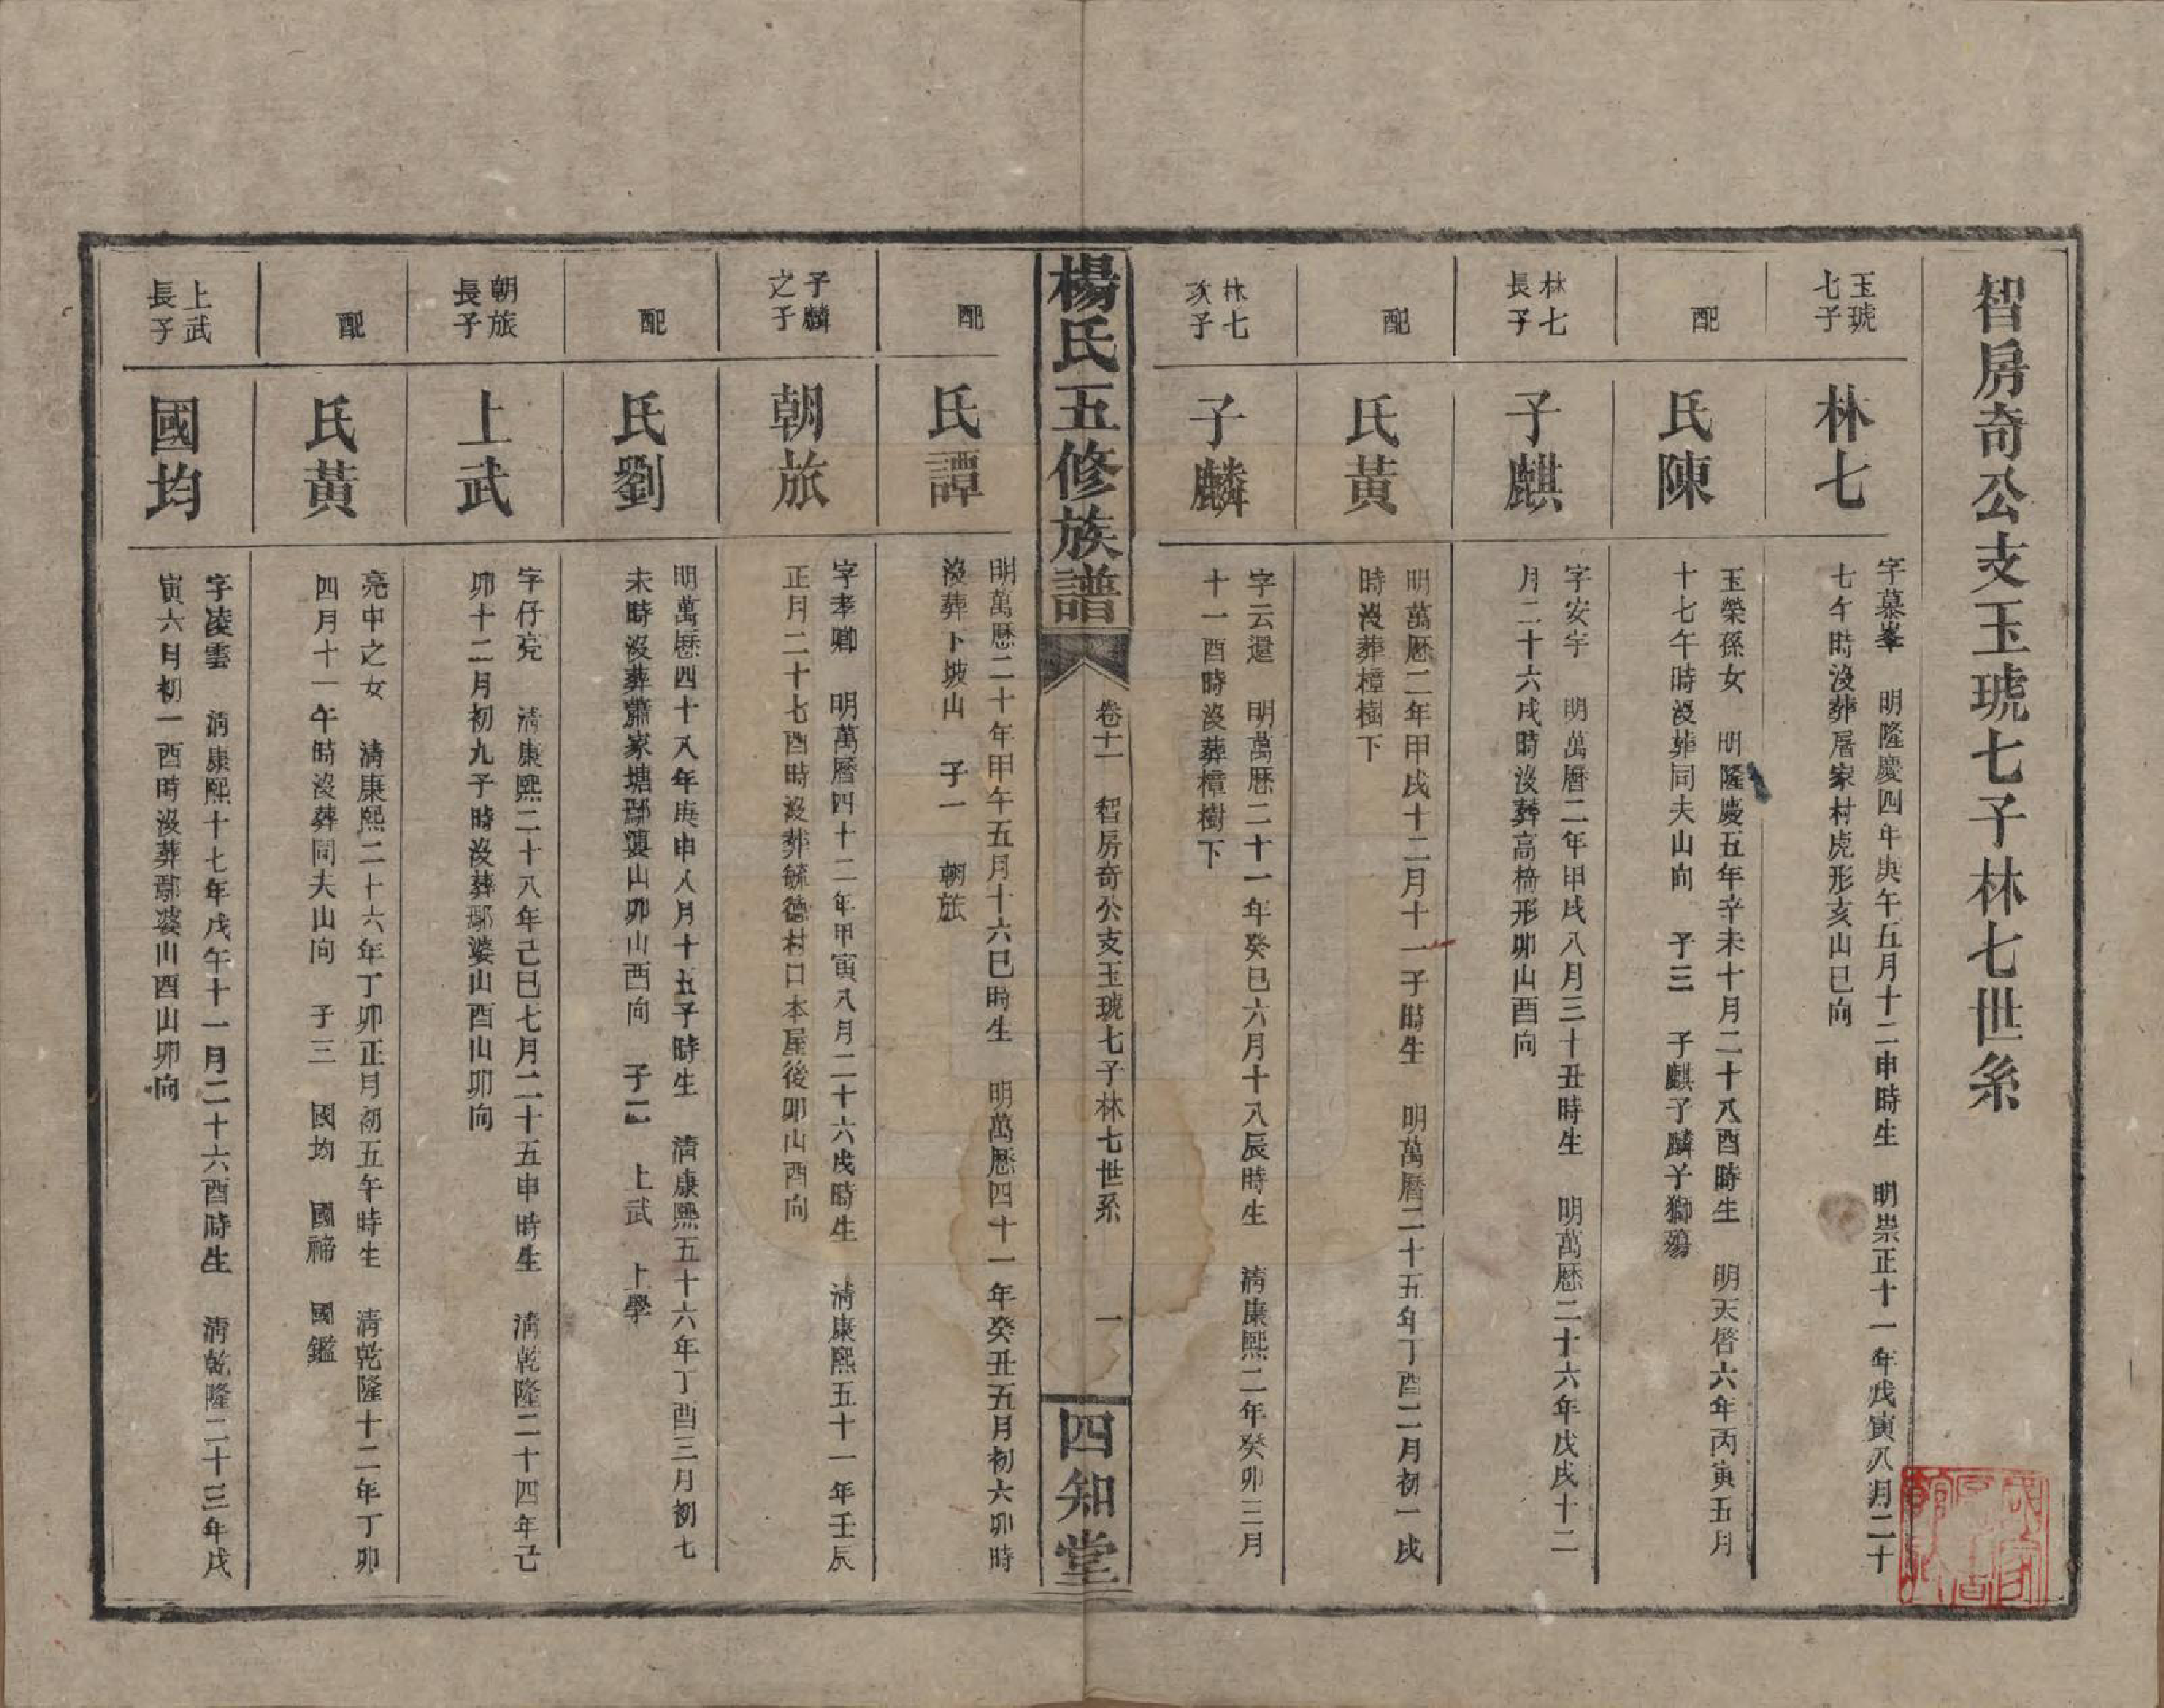 智房奇公支玉琥七子林七世系
玉琥
七子
林七
字慕峯　明隆慶四年庚午五月十二申時生　明崇正十一年戊寅八月二十
七午時沒葬屠家村虎形亥山巳向
配
氏陳
玉榮孫女　明隆慶五年辛未十月二十八酉時生　明天啓六年丙寅五月
十七午時沒葬同夫山向　子三　子麒子麟子獅殤
林七
長子
子麒
字安宇　明萬曆二年甲戌八月三十丑時生　明萬歷二十六年戊戌十二
月二十六戌時沒葬高椅形卯山酉向
配
氏黃
明萬歷二年甲戌十二月十一子時生　明萬曆二十五年丁酉二月初一戌
時沒葬樟樹下
林七
次子
子麟
字云還　明萬歷二十一年癸巳六月十八辰時生　淸康熙二年癸卯三月
十一酉時沒葬樟樹下
楊氏五修族譜
卷十一　智房奇公支玉琥七子林七世系　一
四知堂
配
氏譚
明萬歷二十年甲午五月十六巳時生　明萬歷四十一年癸丑五月初六卯時
沒葬下坡山　子一　朝旅
子麟
之子
朝旅
字孝卿　明萬曆四十二年甲寅八月二十六戌時生　淸康熙五十一年壬辰
正月二十七酉時沒葬毓德村口本屋後卯山酉向
配
氏劉
明萬歷四十八年庚申八月十五子時生　淸康熙五十六年丁酉三月初七
未時沒葬蕭家塘鄢婆山卯山酉向　子二　上武　上學
朝旅
長子
上武
字仔亮　淸康熙二十八年己巳七月二十五申時生　淸乾隆二十四年己
卯十二月初九子時沒葬鄢婆山酉山卯向
配
氏黃
亮中之女　淸康熙二十六年丁卯正月初五午時生　淸乾隆十二年丁卯
四月十一午時沒葬同夫山向　子三　國均　國禘　國鑑
上武
長子
國均
字凌雲　淸康熙十七年戊午十一月二十六酉時生　淸乾隆二十三年戊
寅六月初一酉時沒葬鄢婆山酉山卯向